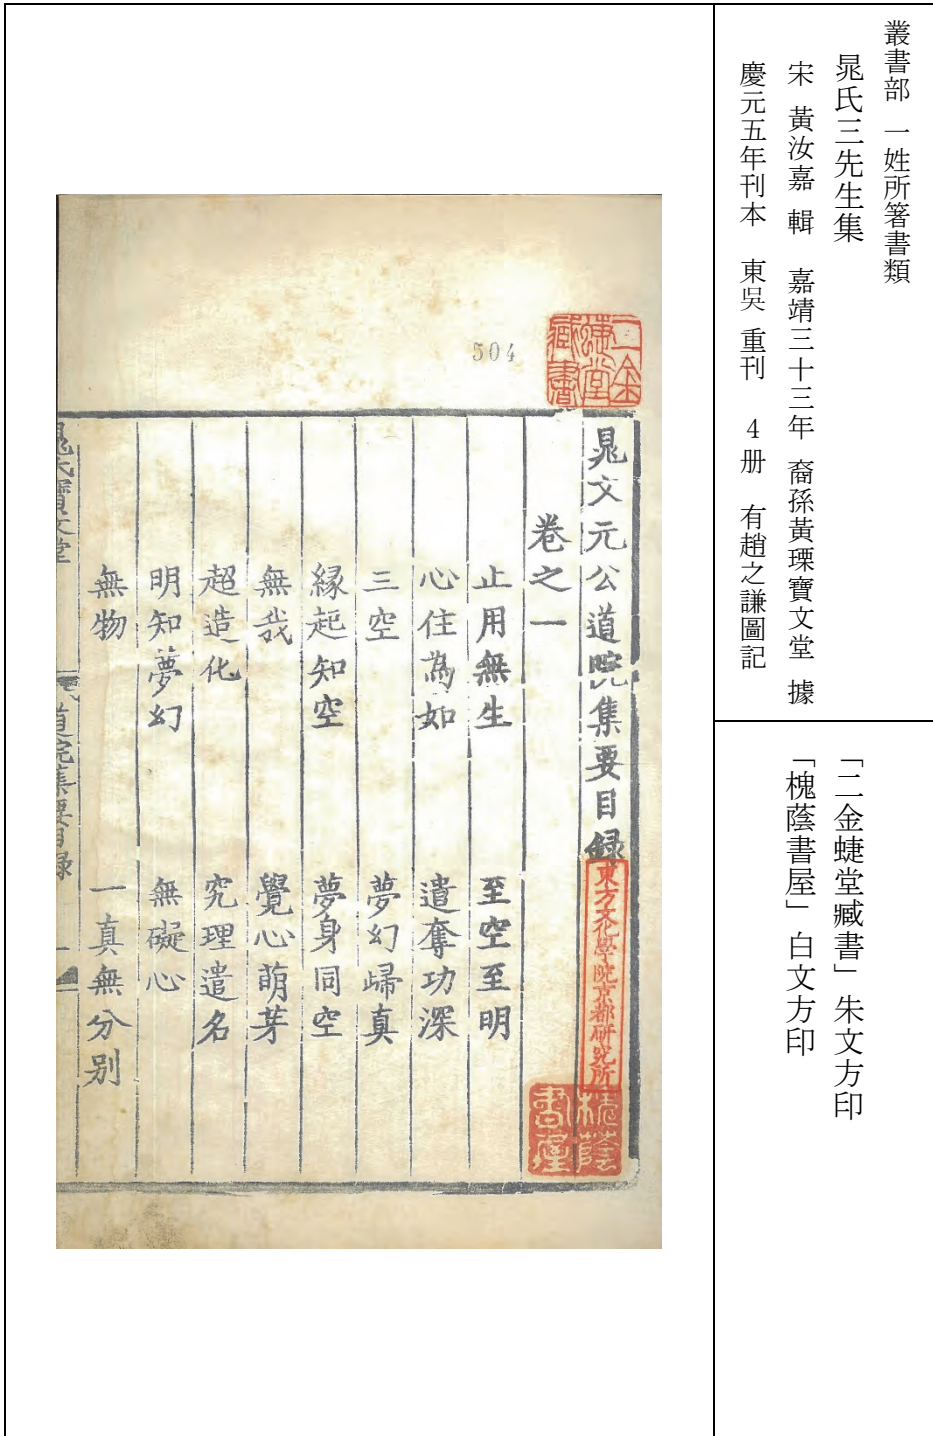 叢書部 一姓所箸書類
晁氏三先生集
宋 黃汝嘉 輯 嘉靖三十三年 裔孫黃瑮寶文堂 據
慶元五年刊本 東吳 重刊 4册 有趙之謙圖記
「二金蜨堂臧書」朱文方印
「槐蔭書屋」白文方印
二金
蜨堂
臧書
504
晁文元公道院集要目録
東方文化學院京都研究所
槐蔭
書屋
卷之一
止用無生 至空至明
心住為如 遣奪功深
三空 夢幻歸真
緣起知空 夢身同空
無我 覺心萌芽
超造化 究理遣名
明知夢幻 無礙心
無物 一真無分别
晁氏寶文堂 道院集要目録 一